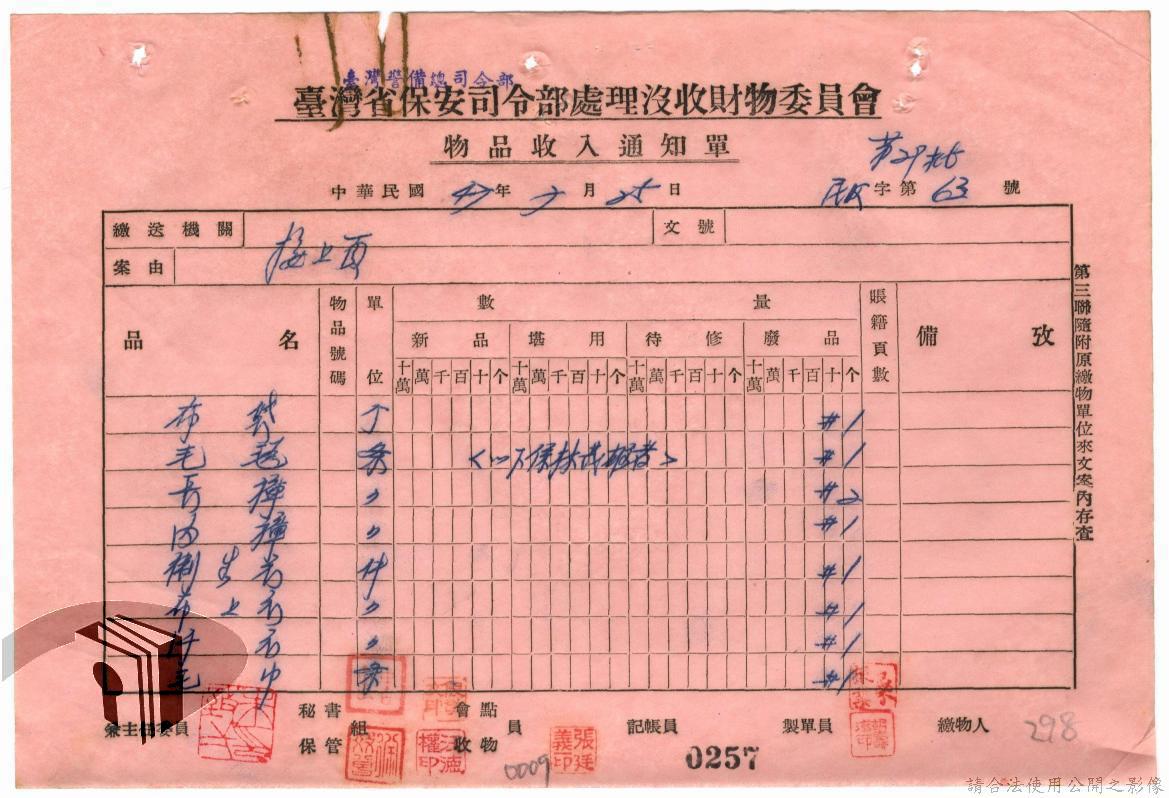 臺灣警備總司令部
臺灣省保安司令部處理沒收財物委員會
物品收入通知單
中華民國 年 月 25 日
字第 63 號
繳送機關 文號
案由 接上頁
品名 物品號碼 單位 數量 賬籍頁數 備攷
新品 堪用 待修 廢品
十萬 萬 千 百 十 个 十萬 萬 千 百 十 个 十萬 萬 千 百 十 个 十萬 萬 千 百 十 个
布袋 个 #1
毛毯 条 #1
長褲 〃 #2
內褲 〃 #1
衛生 件 #1
布上衣 〃 #1
衣 〃 #1
毛巾 条 #1
第三聯隨附原繳物單位來文案內存查
兼主任委員 秘書 會點 員 記帳員 製單員 繳物人
保管組 收物
張廷義印
0009
0257
298
請合法使用公開之影像